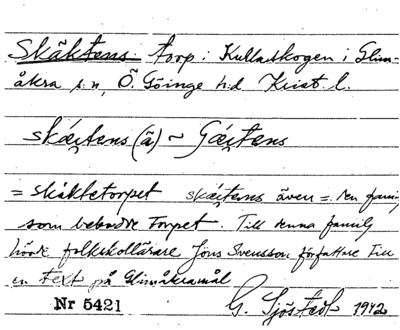 Skäktens torp i Kullaskogen i Glim-
åkra s:n, Ö. Göinge h:d Krist. l.
(ã) ~
= skäktetorpet även = den familj
som bebodde torpet. Till denna familj
hörde folkskollärare Jöns Svensson författare till
en text på Glimåkramål
Nr 5421 G. Sjöstedt 1942